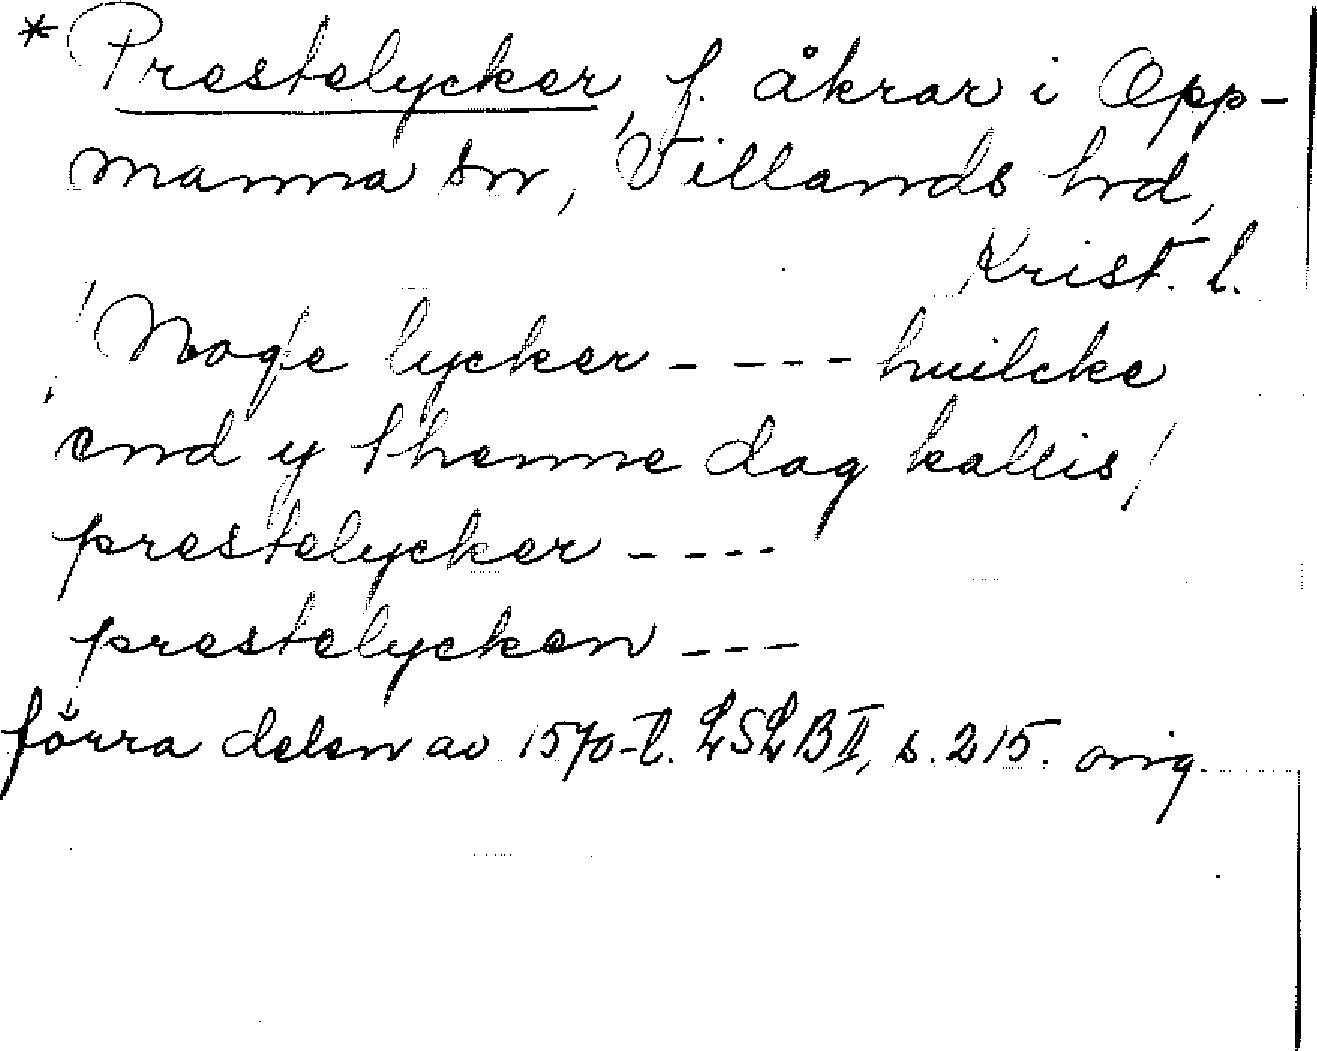 * Prestelycker, f. åkrar i Opp-
manna sn, Villands hd,
Krist. l.
Noge lycker - - - - huilcke
end y thenne dag kallis
prestelycker - - - -
prestelycken - - -
förra delen av 1570-t. LSLB II, s. 215. orig.